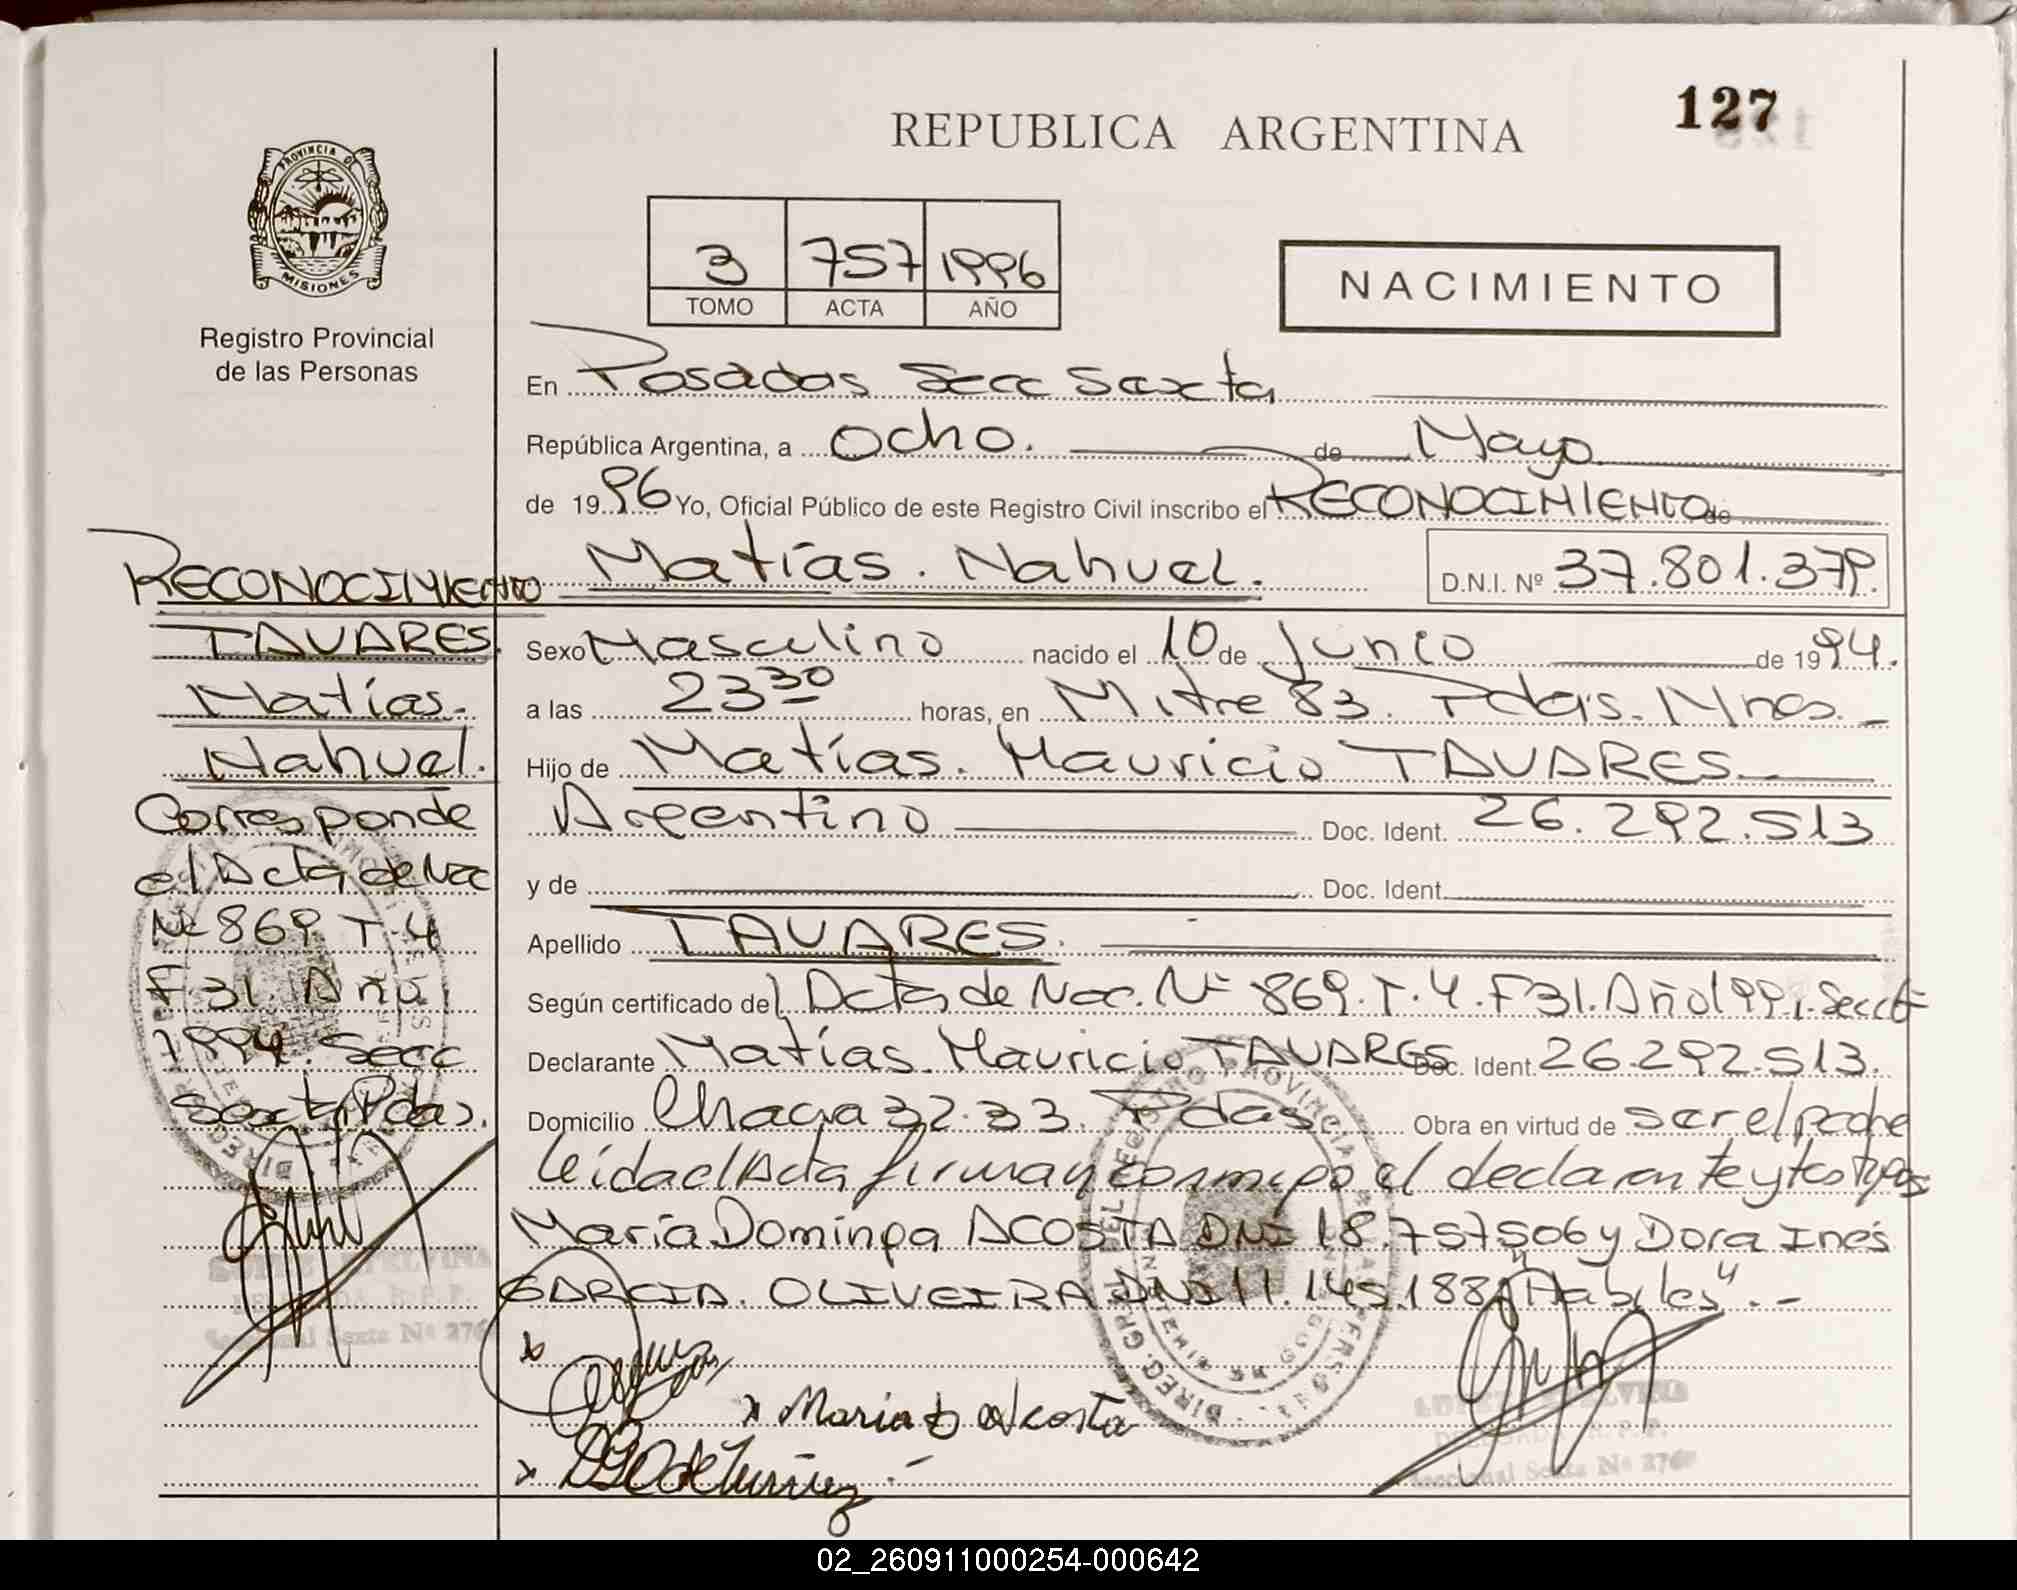 127
REPUBLICA ARGENTINA
PROVINCIA DE
MISIONES
Registro Provincial
de las Personas
3 757 1996
TOMO ACTA AÑO
NACIMIENTO
En Posadas Secc Sexta
República Argentina, a ocho. de Mayo
de 1996 Yo, Oficial Público de este Registro Civil inscribo el RECONOCIMIENTO de
Matías. Nahuel. D.N.I. Nº 37.801.379.
Sexo Masculino nacido el 10 de Junio de 1994.
a las 23 30 horas, en Mitre 83. Pdas. Mnes.
Hijo de Matías. Mauricio TAVARES
Argentino Doc. Ident. 26.292.513
y de Doc. Ident.
Apellido TAVARES.
Según certificado del Acta de Nac. Nº 869. T. 4. F 31. Año 199 Secc
Declarante Matías. Mauricio TAVARES Doc. Ident. 26.292.513.
Domicilio Chaca 32.33. Pdas Obra en virtud de ser el padre
leida el Acta firman conmigo el declarante y tos tigos
María Dominga ACOSTA DNI 18.757506 y Dora Inés
GARCIA. OLIVEIRA DNI 11.145.188 "Habiles".-
x
x Maria D Acosta
x
RECONOCIMIENTO
TAVARES
Matías.
Nahuel.
Corresponde
el Acta de Nac
Nº 869 T. 4
F 31. Año
1994. Secc
Sexta Pdas.
DELEGADA R.P.P.
Seccional Sexta Nº 276
DIREC. GRAL. DEL REGISTRO PROVINCIAL
DELEGADA R.P.P.
Seccional Sexta Nº 276
02_260911000254-000642